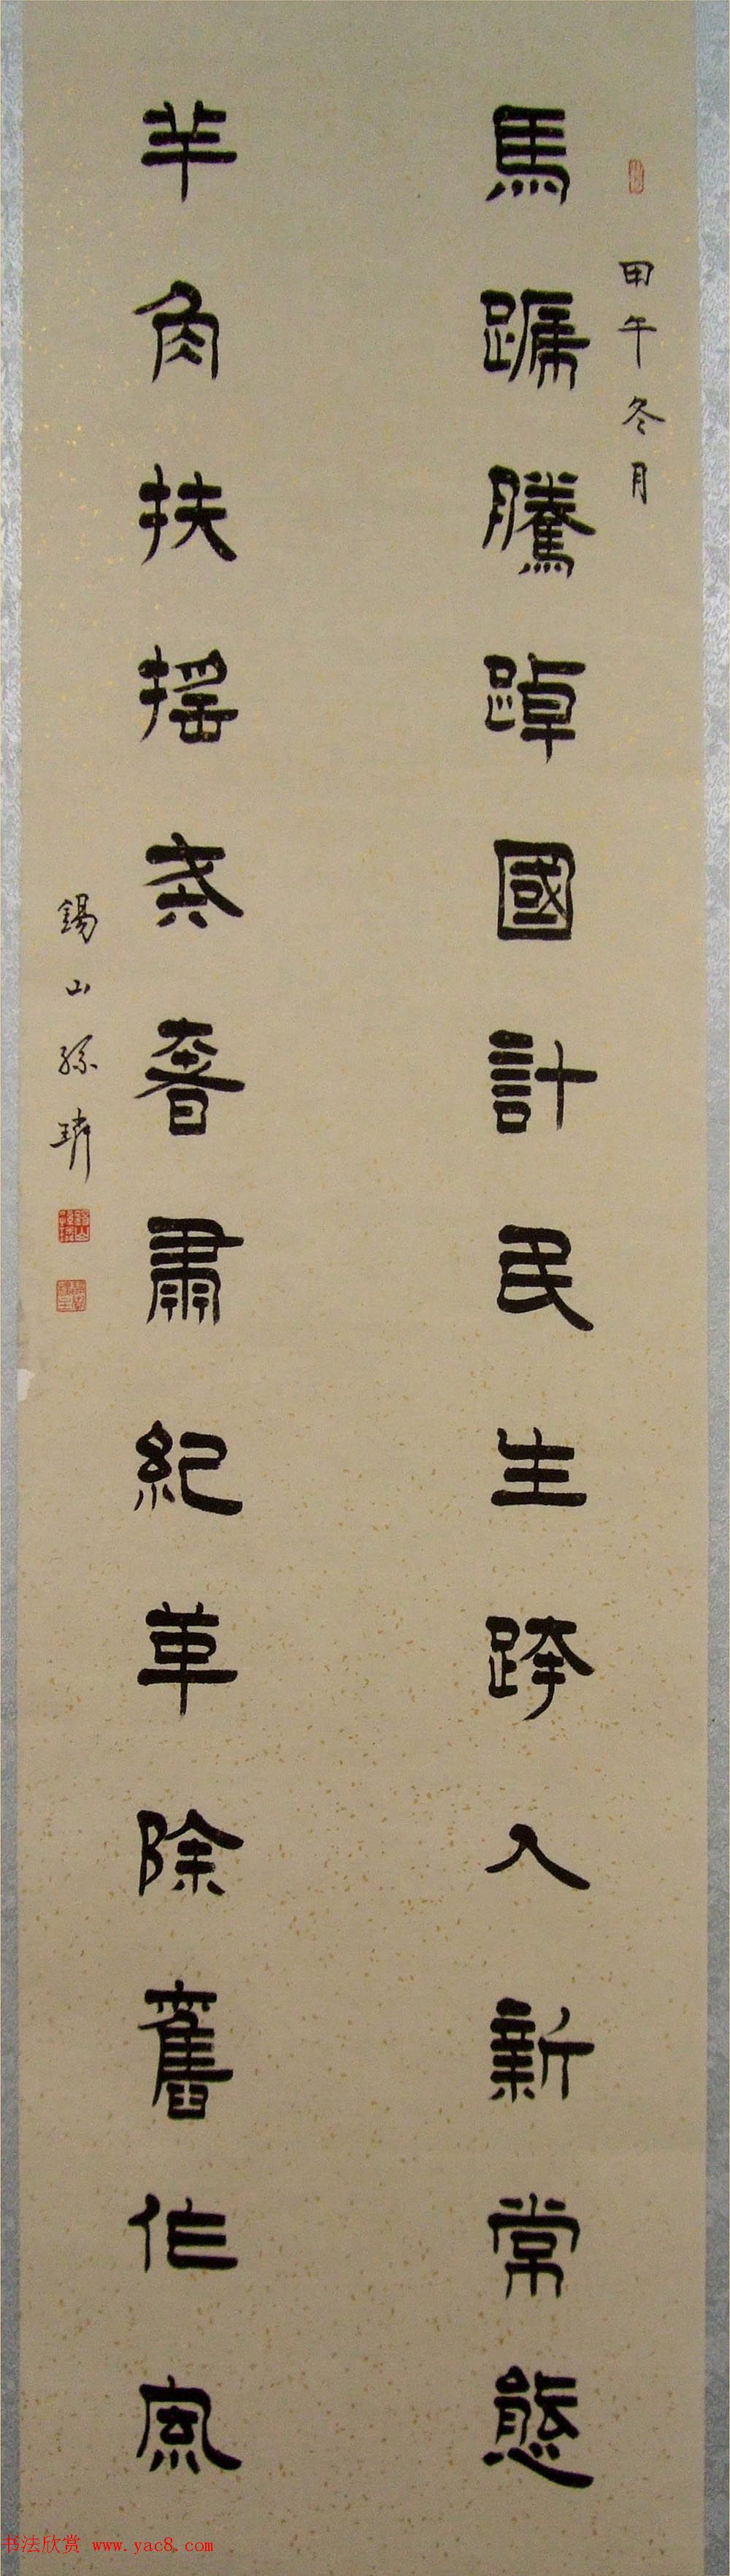 甲午冬月
馬蹏騰踔國計民生跨入新常態
羊角扶摇戒奢肅紀革除舊作風
錫山孫
书法欣赏 www.yac8.com